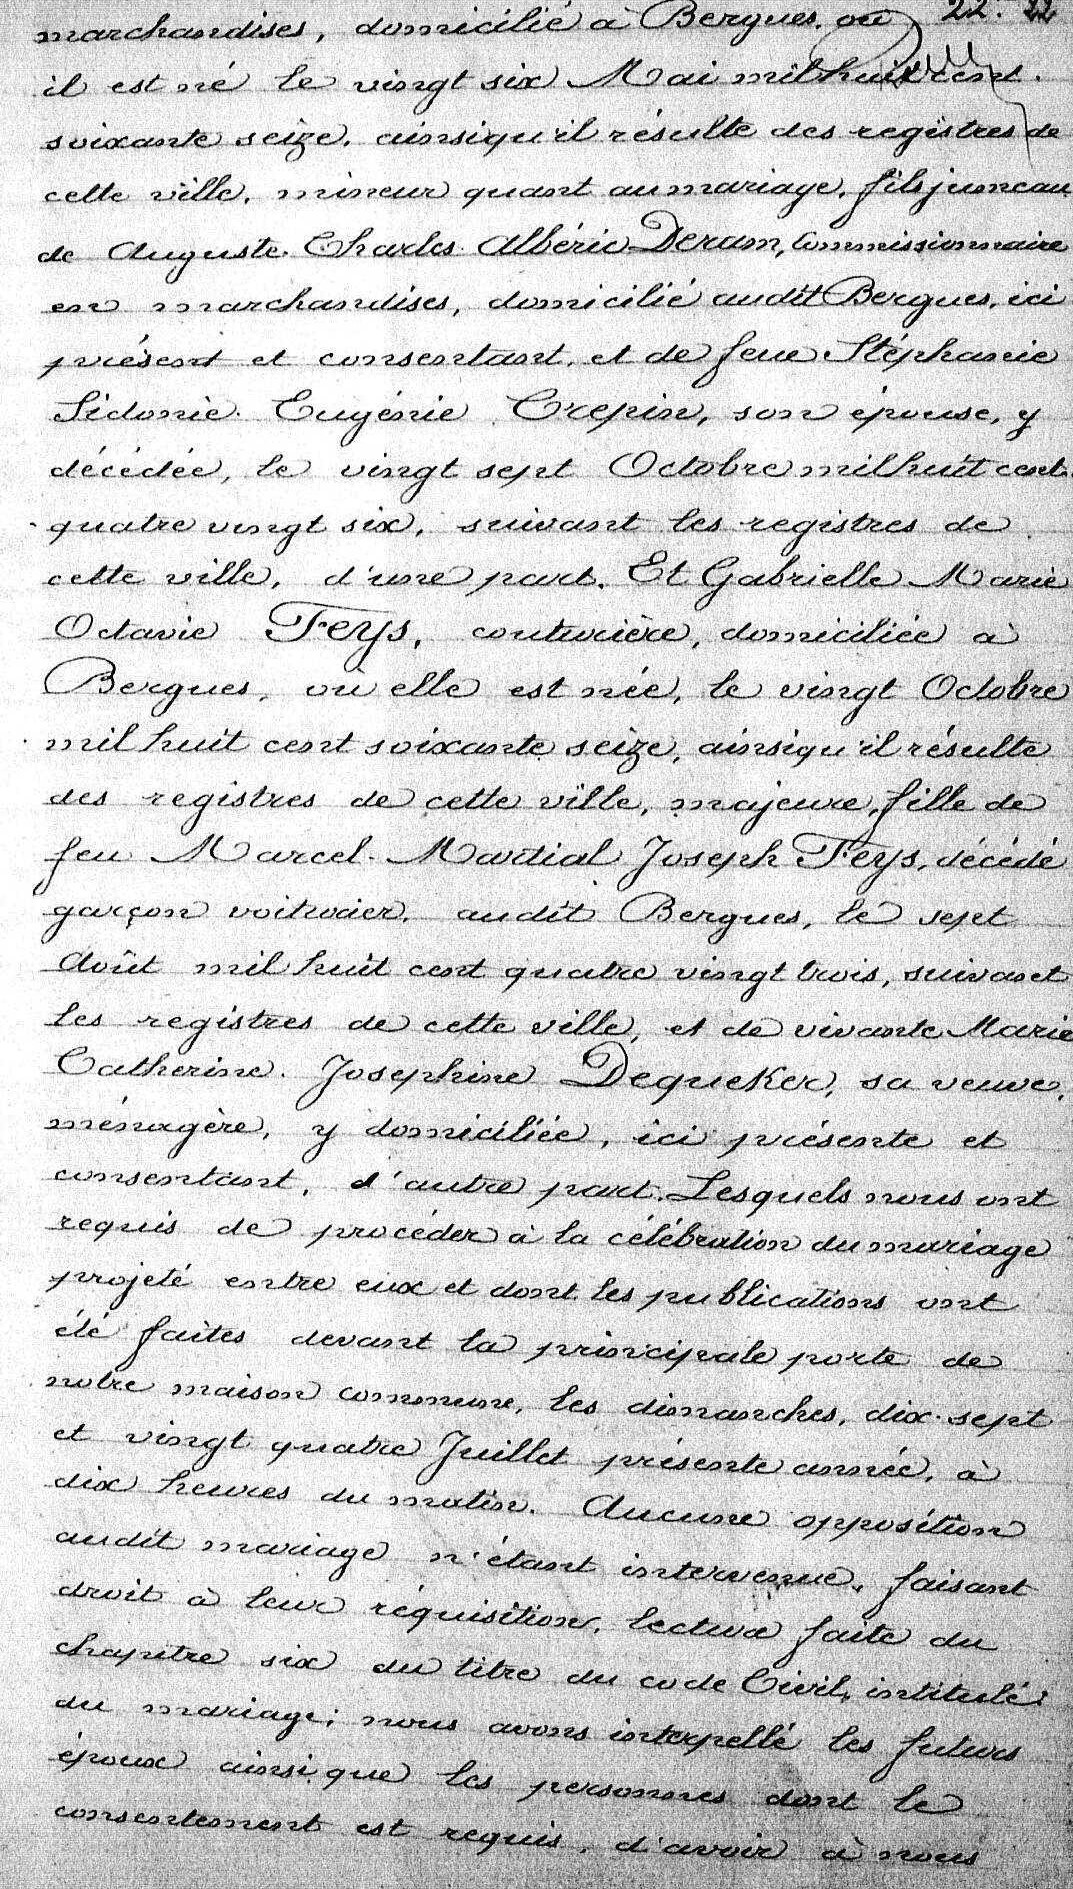 22. 22
marchandises, domicilié à Bergues, ou
il est né le vingt six Mai mil huit cent
soixante seize, ainsi qu'il résulte des registres de
cette ville, mineur quant au mariage, fils jumeau
de Auguste Charles Albéric Deram, Commissionnaire
en marchandises, domicilié audit Bergues, ici
présent et consentant, et de feue Stéphanie
Sidonie Eugénie Crepin, son épouse, y
décédée, le vingt sept Octobre mil huit cent
quatre vingt six, suivant les registres de
cette ville, d'une part. Et Gabrielle Marie
Octavie Feys, couturière, domiciliée à
Bergues, où elle est née, le vingt Octobre
mil huit cent soixante seize, ainsi qu'il résulte
des registres de cette ville, majeure, fille de
feu Marcel Martial Joseph Feys, décédé
garçon voiturier, audit Bergues, le sept
Août mil huit cent quatre vingt trois, suivant
les registres de cette ville, et de vivante Marie
Catherine Josephine Dequeker, sa veuve,
ménagère, y domiciliée, ici présente et
consentant, d'autre part. Lesquels nous ont
requis de procéder à la célébration du mariage
projeté entre eux et dont les publications ont
été faites devant la principale porte de
notre maison commune, les dimanches, dix-sept
et vingt quatre Juillet présente année, à
dix heures du matin. Aucune opposition
audit mariage n'étant intervenue, faisant
droit à leur réquisition, lecture faite du
chapitre six du titre du code Civil, intitulé:
du mariage; nous avons interpellé les futurs
époux ainsi que les personnes dont le
consentement est requis, d'avoir à nous